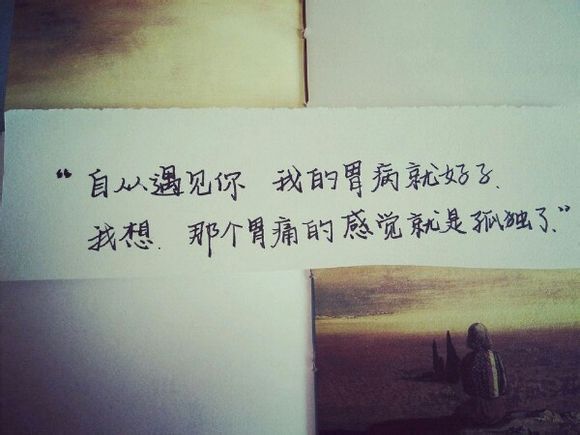 “自从遇见你 我的胃病就好了.
我想. 那个胃痛的感觉就是孤独了.”